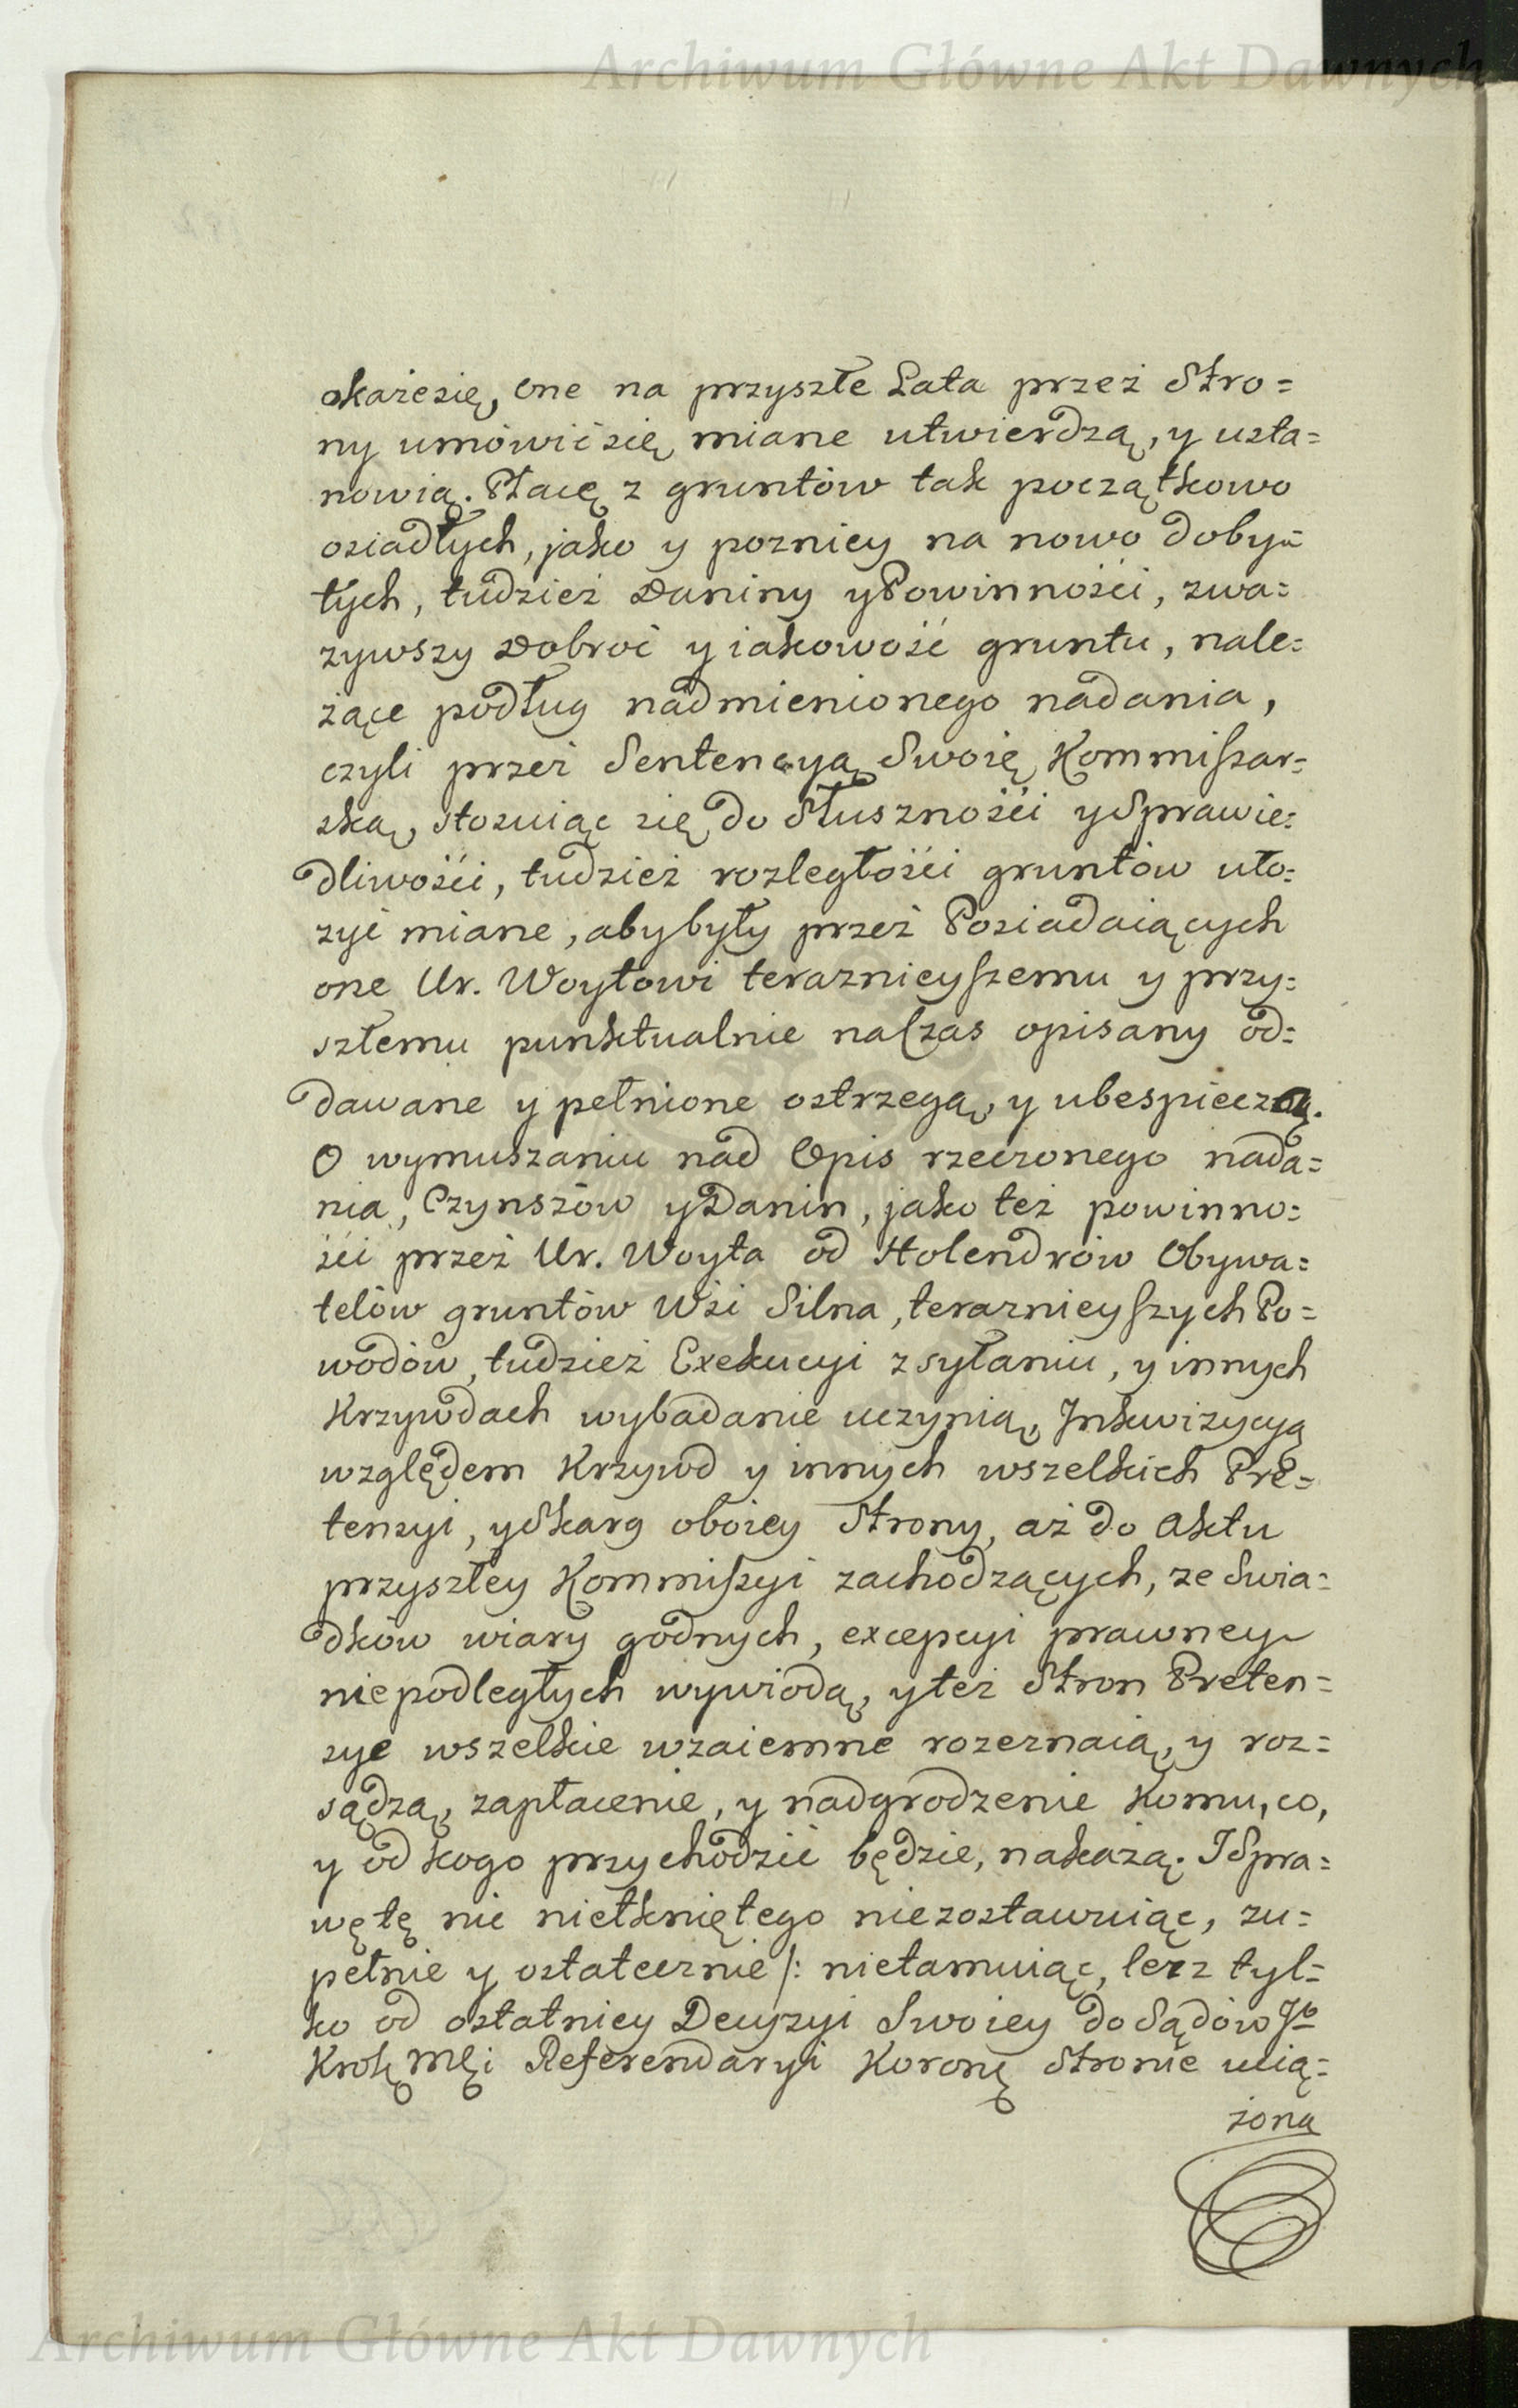 Archiwum Główne Akt Dawnych
okaże się, one na przyszłe Lata przez Stro=
ny umówić się miane utwierdzą, y usta=
nowią. Płacę z gruntów tak początkowo
osiadłych, jako y pozniey na nowo doby=
tych, tudzież Daniny y Powinności, zwa=
żywszy Dobroć y iakowość gruntu, nale=
żące podług nadmienionego nadania,
czyli przez Sentencyą Swoię Kommissar=
ską, stosuiąc się do Słuszności y Sprawie=
dliwości, tudzież rozległości gruntów uło=
żyć miane, aby były przez Posiadaiących
one Ur. Woytowi teraznieyszemu y przy=
szłemu punktualnie na Czas opisany od=
dawane y pełnione ostrzegą, y ubespieczą.
O wymuszaniu nad Opis rzeczonego nada=
nia, Czynszów y Danin, jako też powinno=
ści przez Ur. Woyta od Holendrów Obywa=
telów gruntów Wsi Silna, teraznieyszych Po=
wodów, tudzież Exekucyi zsyłaniu, y innych
Krzywdach wybadanie uczynią, Inkwizycyą
względem Krzywd y innych wszelkich Pre=
tensyi, y Skarg oboiey Strony, aż do Aktu
przyszłey Kommissyi zachodzących, ze Swia=
dków wiary godnych, excepcyi prawney
niepodległych wywiodą, y też Stron Preten=
sye wszelkie wzaiemne rozeznaią, y roz=
sądzą, zapłacenie, y nadgrodzenie komu, co,
y od kogo przychodzić będzie, nakażą. I Spra=
wę tę nic nietkniętego niezostawuiąc, zu=
pełnie y ostatecznie /: nietamuiąc, lecz tyl=
ko od ostatniey Decyzyi Swoiey do Sądów J.
Krolę. Mci Referendaryi Koronę. Stronie uią=
żoną
Archiwum Główne Akt Dawnych